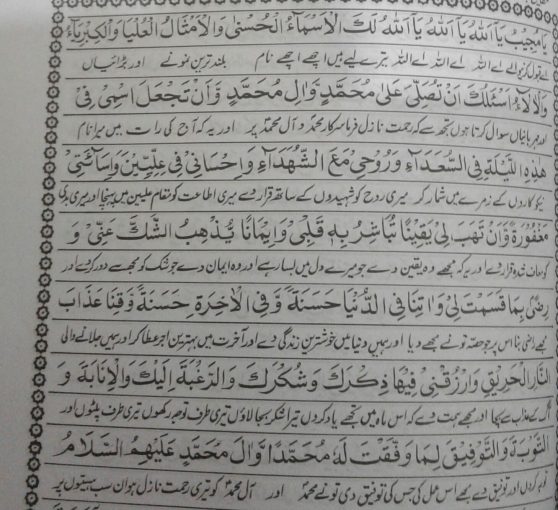 یَا مُجِیْبُ یَآ اَللهُ یَآ اَللهُ یَآ اَللهُ لَكَ الْاَسْمَآءُ الْحُسْنٰی وَالْاَمْثَالُ الْعُلْیَا وَالْكِبْرِیَآءُ
اے اللہ اے اللہ اے اللہ تیرے لیے ہیں اچھے اچھے نام بلند ترین نمونے اور بڑائیاں
وَالْاٰلَآءُ اَسْئَلُكَ اَنْ تُصَلِّیَ عَلٰی مُحَمَّدٍ وَّاٰلِ مُحَمَّدٍ وَّاَنْ تَجْعَلَ اسْمِیْ فِیْ
اور مہربانیاں سوال کرتا ہوں تجھ سے کہ رحمت نازل فرما سرکار محمدؐ و آل محمدؑ پر اور یہ کہ آج کی رات میں میرا نام
هٰذِهِ اللَّیْلَةِ فِی السُّعَدَآءِ وَرُوْحِیْ مَعَ الشُّهَدَآءِ وَاِحْسَانِیْ فِیْ عِلِّیِّیْنَ وَاِسَآئَتِیْ
نیکوکاروں کے زمرے میں شمار کر میری روح کو شہیدوں کے ساتھ قرار دے میری اطاعت کو مقام علیین میں پہنچا اور میری بدی
مَغْفُوْرَةً وَّاَنْ تَهَبَ لِیْ یَقِیْنًا تُبَاشِرُ بِهٖ قَلْبِیْ وَاِیْمَانًا یُّذْهِبُ الشَّكَّ عَنِّیْ وَ
کو معاف شدہ قرار دے اور یہ کہ مجھے وہ یقین دے جو میرے دل میں بسا رہے اور وہ ایمان دے جو شک کو مجھ سے دور کر دے اور
رِضًی بِمَا قَسَمْتَ لِیْ وَاٰتِنَا فِی الدُّنْیَا حَسَنَةً وَّفِی الْاٰخِرَةِ حَسَنَةً وَّقِنَا عَذَابَ
مجھے راضی بنا اس پر جو حصہ تو نے مجھے دیا اور ہمیں دنیا میں خوشترین زندگی دے اور آخرت میں بہترین اجر عطا کر اور ہمیں جلانے والی
النَّارِ الْحَرِیْقِ وَارْزُقْنِیْ فِیْهَا ذِكْرَكَ وَشُكْرَكَ وَالرَّغْبَةَ اِلَیْكَ وَالْاِنَابَةَ وَ
آگ کے عذاب سے بچا اور مجھے ہمت دے کہ اس ماہ میں تجھے یاد کروں تیرا شکر بجا لاؤں تیری طرف توجہ رکھوں تیری طرف پلٹوں اور
التَّوْبَةَ وَالتَّوْفِیْقَ لِمَا وَفَّقْتَ لَهٗ مُحَمَّدًا وَّاٰلَ مُحَمَّدٍ عَلَیْهِمُ السَّلَامُ
توبہ کروں اور توفیق دے مجھے اس عمل کی جس کی توفیق دی تو نے محمدؐ اور آل محمدؑ کو تیری رحمت نازل ہو ان سب ہستیوں پر